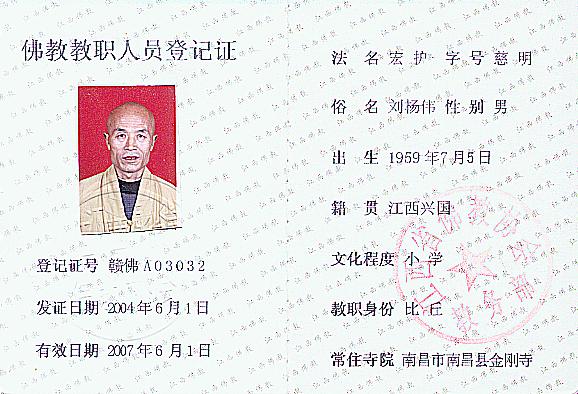 佛教教职人员登记证
登记证号 赣佛A03032
发证日期 2004年6月1日
有效日期 2007年6月1日
法 名 宏 护 字 号 慈 明
俗 名 刘杨伟 性 别 男
出 生 1959年7月5日
籍 贯 江西兴国
文化程度 小 学
教职身份 比 丘
常住寺院 南昌市南昌县金刚寺
江西省佛教协会
教务部